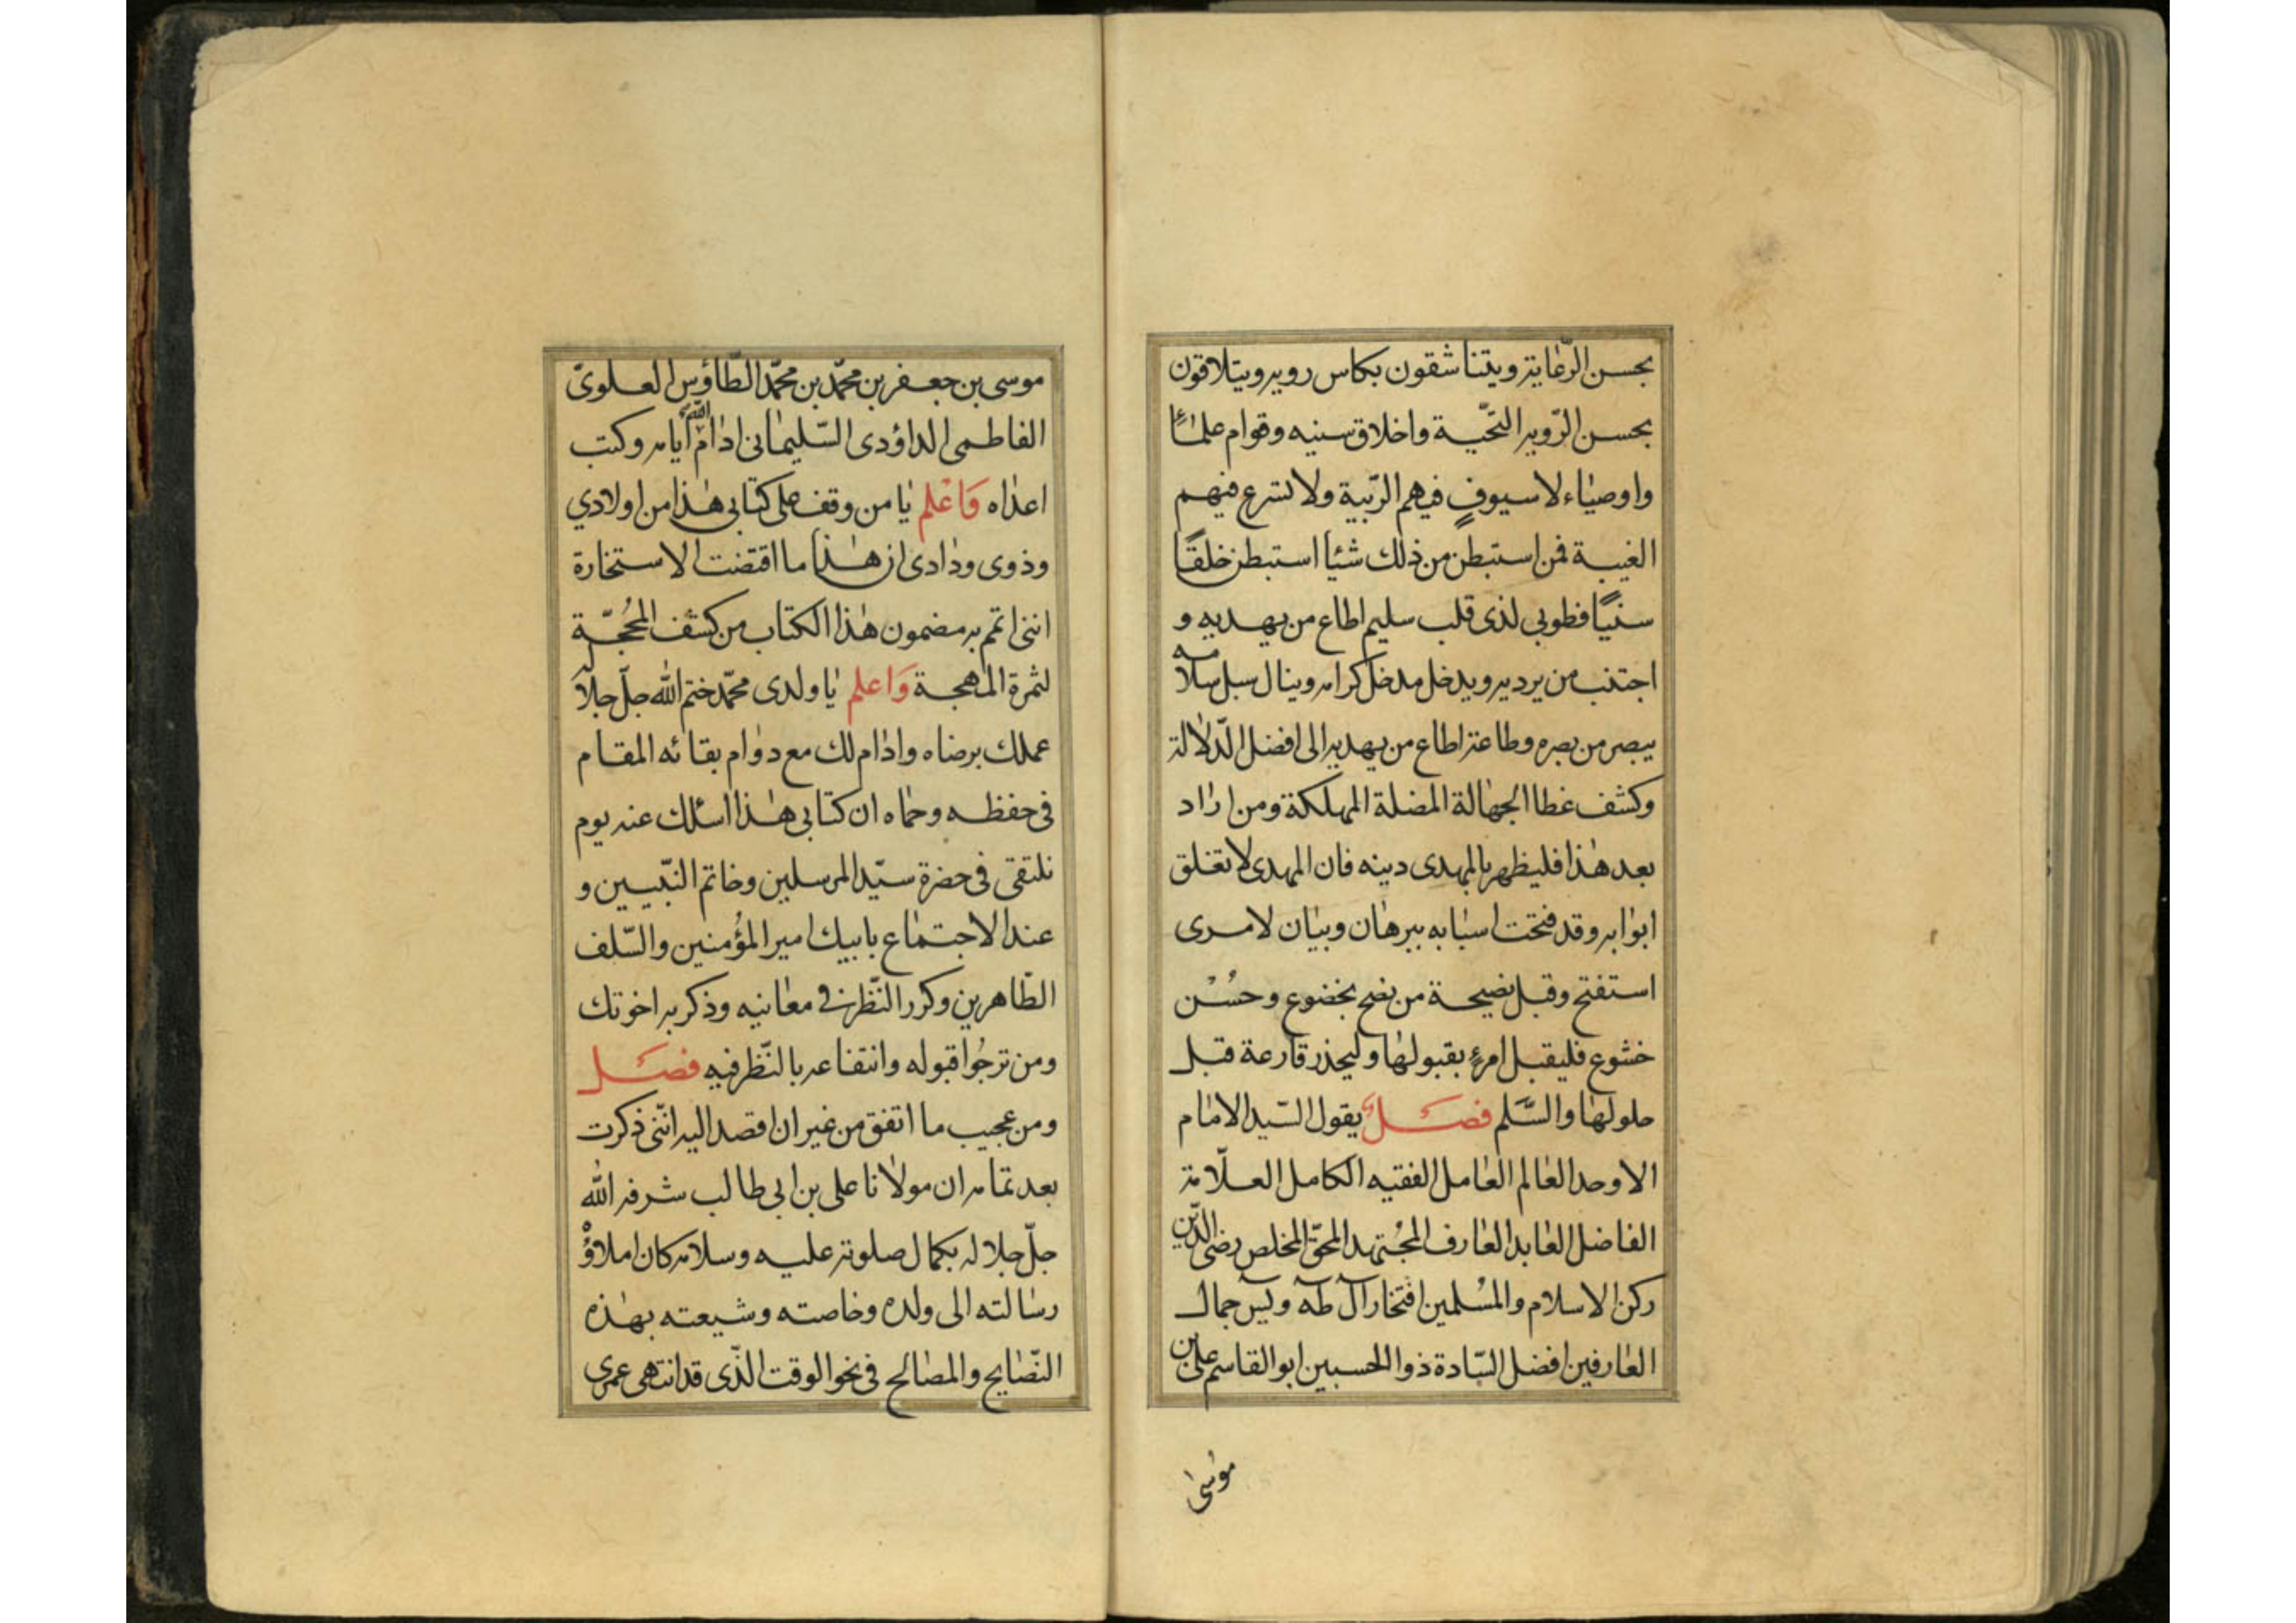 بحسن الرّعاية ويتناشقون بكاس روية ويتلاقون
بحسن الرّوية التحّية واخلاق سنيه وقوام علمٰاءً
واوصيٰاء لا سيوفٍ فيهم الرّيبة ولا تسرع فيهم
الغيبة فمن استبطن من ذلك شئياً استبطن خلقًا
سنيًّا فطوبى لذى قلب سليم اطاع من يهديه و
اجتنب من يرديه ويدخل مدخل كرامه وينال سبل سلامه
يبصر من بصره وطاعة اطاع من يهديه الى افضل الدّلالة
وكشف غطا الجهٰالة المضلة المهلكة ومن ارٰاد
بعد هٰذا فليظهر بالمهدى دينه فان المهدى لا تغلق
ابوٰابه وقد فتحت اسبٰابه ببرهٰان وبيٰان لامرى
استفتح وقبل نصيحة من نصح بخضوع وحُسْن
خشوع فليقبل امرءٍ بقبولهٰا وليحذر قارعة قبل
حلولهٰا والسَّلم فصَلٌ يقول السّيد الامٰام
الاوحد العٰالم العٰامل الفقيه الكامل العلّامة
الفاضل العٰابد العٰارف المجُتهد المحقّ المخلص رضى الدّين
ركن الاسلام والمسُلمين افتخار آل طٓه ويٓس جمال
العٰارفين افضل السّادة ذوا الحسبين ابوالقاسم على بن
موسٰى
موسى بن جعفر بن محمّد بن محمّد الطّاؤس العلوىّ
الفاطمى الداؤدى السّليمٰانى ادٰام اللّٰه ايامه وكبت
اعدٰاه وَاعْلم يٰا من وقف على كتابى هٰذا من اولادي
وذوى ودٰادى ان هٰذا ما اقتضت الاستخارة
اننى اتمم به مضمون هٰذا الكتاب من كشف المُحجّة
لثمرة المهجة وَاعلم يٰا ولدى محمّد ختم اللّٰه جلّ جلاله
عملك برضاه وادٰام لك مع دوٰام بقائه المقام
فى حفظه وحمٰاه ان كتابى هٰذا اسئلك عنه يوم
نلتقى فى حضرة سيّد المرسلين وخاتم النّبيين و
عند الاجتمٰاع بابيك امير المؤمنين والسّلف
الطّاهرين وكرر النّظر فى معانيه وذكر به اخوتك
ومن ترجُوا قبوله وانتفاعه بالنّظر فيه فصَل
ومن عجيب ما اتفق من غير ان اقصد اليه انّنى ذكرت
بعد تمامه ان مولانا على بن ابى طالب شرفه اللّٰه
جلّ جلاله بكمال صلوته عليه وسلامه كان املاؤُه
رسٰالته الى ولده وخاصته وشيعته بهٰذه
النّصٰايح والمصٰالح فى نحو الوقت الذّى قد انتهى عمرى